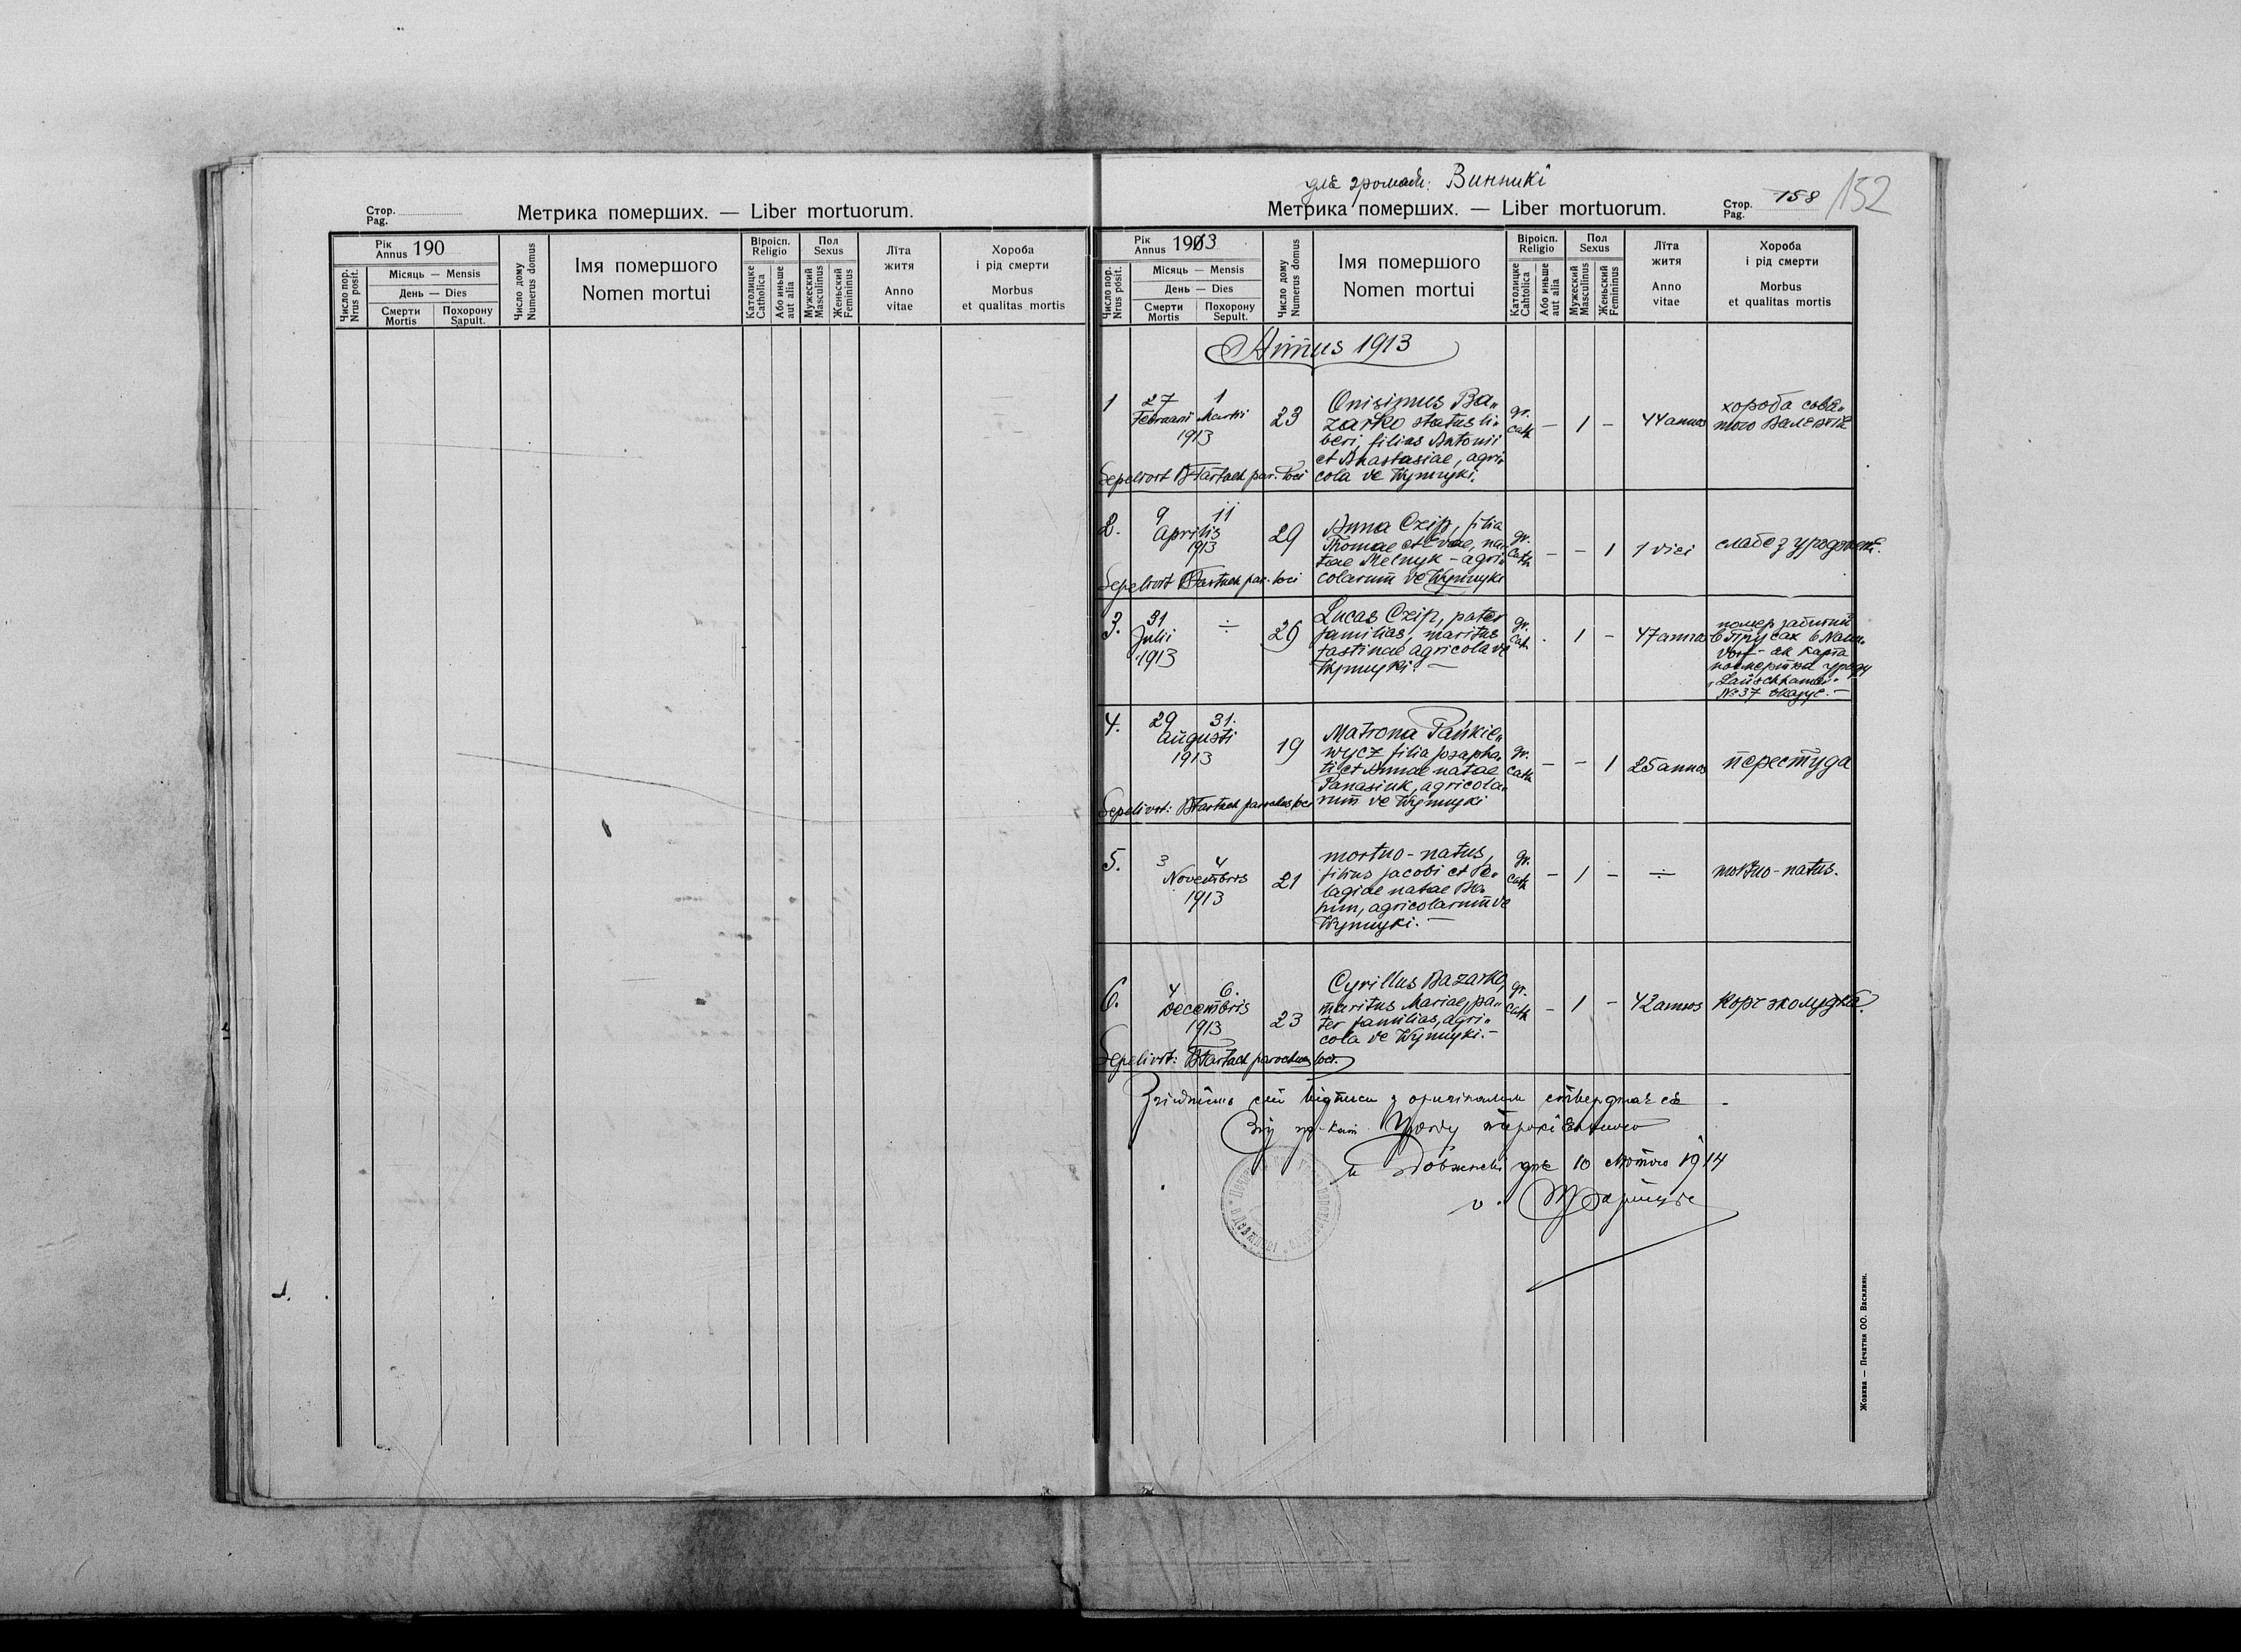 Стор.
Pag.
Метрика померших. — Liber mortuorum.
Рік
Annus 190
Місяць — Mensis
День — Dies
Смерти
Mortis
Похорону
Sapult.
Число пор.
Nrus posit.
Число дому
Numerus domus
Імя помершого
Nomen mortui
Віроісп.
Religio
Католицке
Catholica
Або иньше
aut alia
Пол
Sexus
Мужеский
Masculinus
Женьский
Femininus
Лїта
житя
Anno
vitae
Хороба
і рід смерти
Morbus
et qualitas mortis
для громади: Винники
Метрика померших. — Liber mortuorum.
Стор.
Pag.
158
152
Рік
Annus 1913
Місяць — Mensis
День — Dies
Смерти
Mortis
Похорону
Sepult.
Число пор.
Nrus posit.
Число дому
Numerus domus
Імя помершого
Nomen mortui
Віроісп.
Religio
Католицке
Cahtolica
Або иньше
aut alia
Пол
Sexus
Мужеский
Masculinus
Женьский
Femininus
Лїта
житя
Anno
vitae
Хороба
і рід смерти
Morbus
et qualitas mortis
Annus 1913
1 27 1 23
Februarii Martii
1913
Onisimus Ba„
zarko status li„
beri, filius Antonii
et Anastasiae, agri„
cola de Wynnyki.
gr.
cath — 1 — 44 annos
хороба свя„
того Валентія
Sepelivit par. loci
2. 9 11 29
Aprilis
1913
Anna Czip, filia
Thomae et Evae, na„
tae Melnyk - agri„
colarum de Wynnyki
gr.
cath — — 1 1 diei слабе з уродженя.
Sepelivit par. loci
3. 31 ÷ 26
Julii
1913
Lucas Czip, pater
familias, maritus
Justinae agricola de
Wynnyki. —
gr.
cath - 1 — 47 annos
помер забитий
в Прусах в
як карта
посмертна уряду
№ 37 вказує. —
4. 29 31. 19
Augusti
1913
Matrona Pańkie„
wycz filia Josapha„
ti et Annae natae
Panasiuk, agricola„
rum de Wynnyki
gr.
cath — — 1 25 annos перестуда
Sepelivit: parochus loci
5. 3 4 21
Novembris
1913
mortuo-natus,
filius Jacobi et Pe„
lagiae natae
agricolarum de
Wynnyki. —
gr.
cath — 1 — ÷ mortuo-natus.
6. 4 6. 23
Decembris
1913
Cyrillus Bazarko,
maritus Mariae, pa„
ter familias, agri„
cola de Wynnyki. —
gr.
cath — 1 — 42 annos корч жолудка.
Sepelivit: parochus loci.
Згідність сеї відписи з оригіналом стверджає ся —
Від гр.-кат. Уряду парохіяльного
дня 10 лютого 1914
о.
Жовква — Печатня ОО. Василиян.